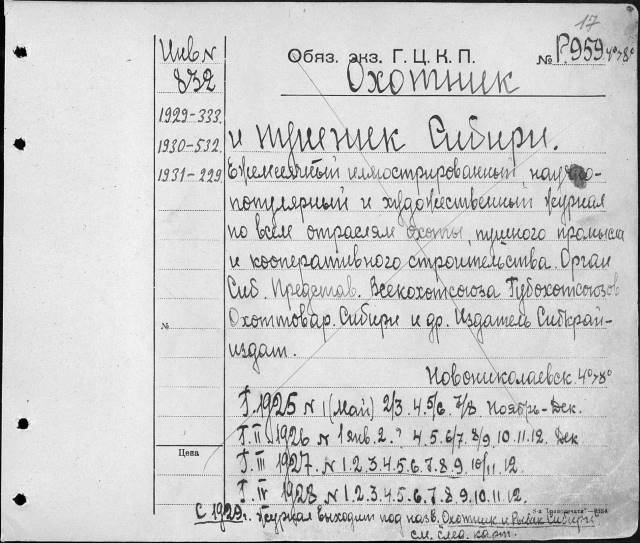 17
Инв N
832
1929-333.
1930-532.
1931-229
Обяз. экз. Г. Ц. К. П.
№ Р.959 4°>8°
Охотник
и пушник Сибири.
Ежемесячный иллюстрированный научно-
популярный и художественный журнал
по всем отраслям охоты, пушного промысла
и кооперативного строительства. Орган
Сиб. Представ. Всекохотсоюза Губохотсоюзов
Охоттовар. Сибири и др. Издатель Сибкрай-
издат.
№
Новониколаевск. 4°>8°
Г. 1925 N 1 (Май) 2/3. 4. 5/6. 7/8 Ноябрь-Дек.
Г. II 1926 N 1 янв. 2. ? 4. 5. 6/7. 8/9. 10. 11. 12. Дек
Цена
Г. III 1927. N 1. 2. 3. 4. 5. 6. 7. 8. 9. 10/11. 12.
Г. IV 1928 N 1. 2. 3. 4. 5. 6. 7. 8. 9. 10. 11. 12.
С 1929г. Журнал выходит под назв. Охотник и рыбак Сибири
см. след. карт.